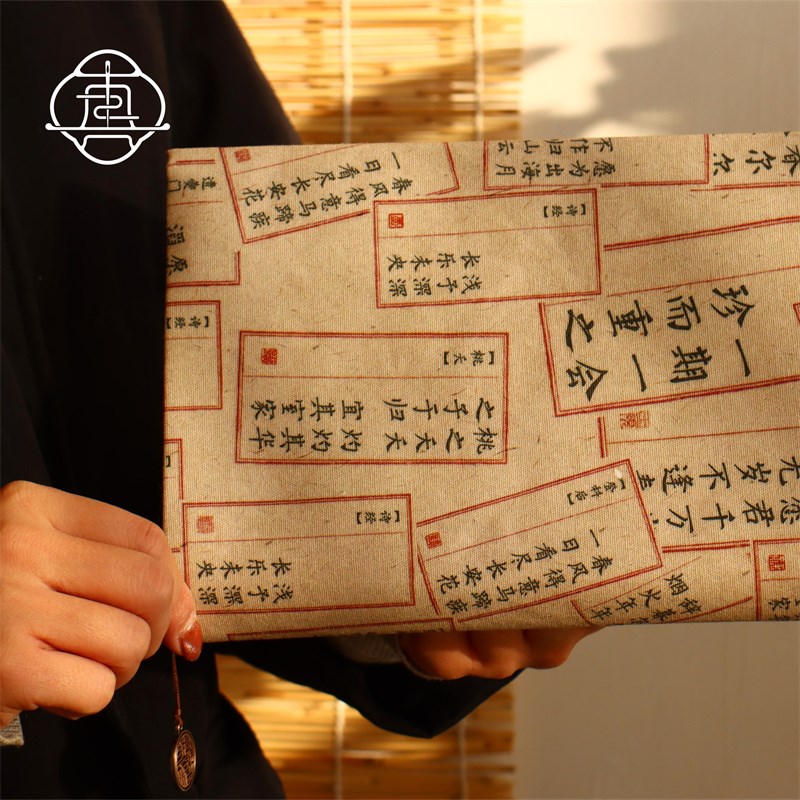 春风得意马蹄疾
一日看尽长安花
愿为出海月
不作归山云
春尔尔
【诗经】
浅予深深
长乐未央
一期一会
珍而重之
【诗经】
【桃夭】
桃之夭夭
灼灼其华
之子于归
宜其室家
愿君千万
无岁不逢
【诗经】
浅予深深
长乐未央
【登科后】
春风得意马蹄疾
一日看尽长安花
烟火年年